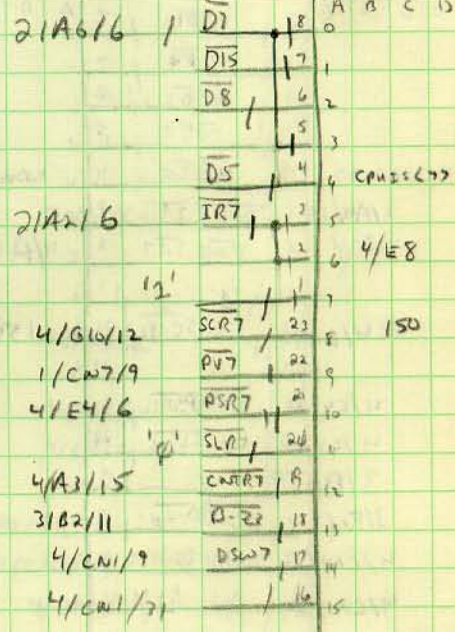 A B C D
21A6/6 D7 8 0
D15 7 1
D8 6 2
5 3
D5 4 4
21A2/6 IR7 3 5
2 6 4/E8
'1' 1 7
4/G10/12 SCR7 23 8 150
1/CN7/9 PV7 22 9
4/E4/6 PSR7 21 10
'φ' SLR 20
4/A3/15 CNTR7 12
31B2/11 18 13
4/CN1/9 DSW7 17 14
4/CN1/31 16 15